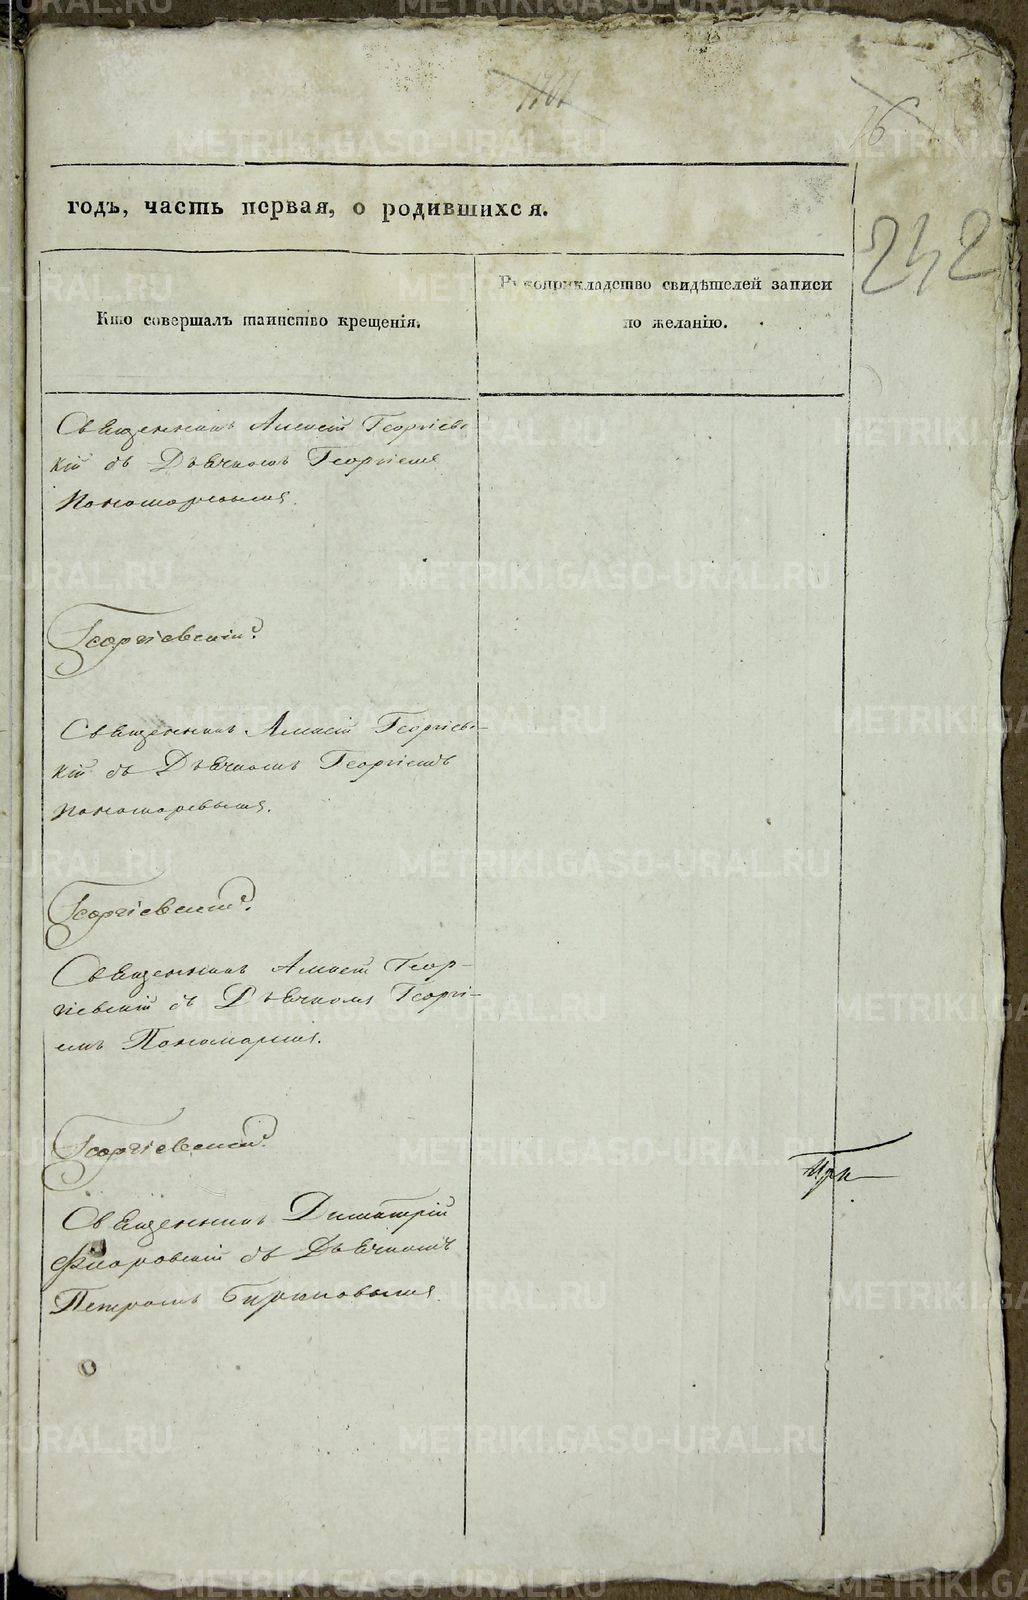 16
242
годъ, часть первая, о родившихся.
Кто совершалъ таинство крещенія.
Рукоприкладство свидѣтелей записи
по желанію.
Священникъ Алексій Георгіев-
кій съ Дьячкомъ Георгіемъ
Пономаревымъ.
Георгіевскій.
Священникъ Алексій Георгіев-
кій съ Дьячкомъ Георгіемъ
Пономаревымъ.
Георгіевскій.
Священникъ Алексій Геор-
гіевскій съ Дьячкомъ Георгі-
емъ
Георгіевскій.
Священникъ Димитрій
Флоровскій съ Дьячкомъ
Петромъ Бирюковымъ.
METRIKI.GASO-URAL.RU